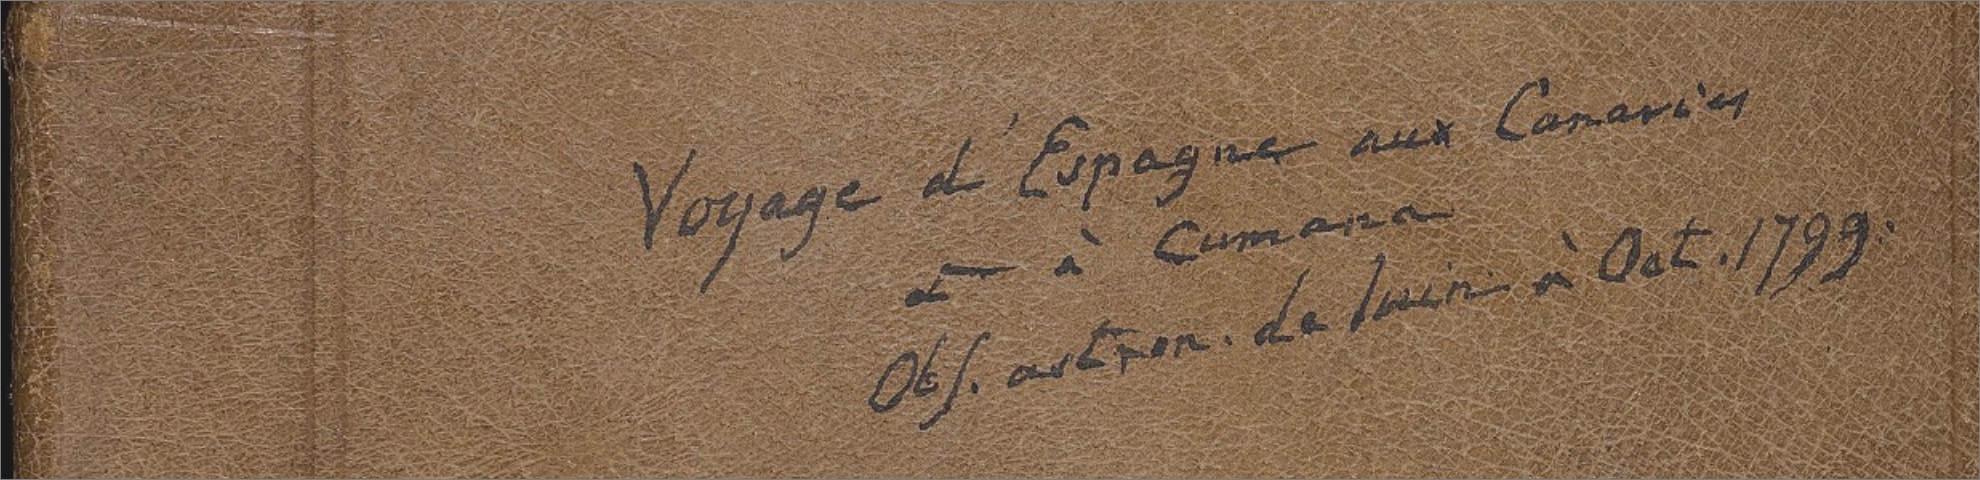 Voyage d'Espagne aux Canaries
et à Cumana
Obs. astron. de Juin à Oct. 1799.